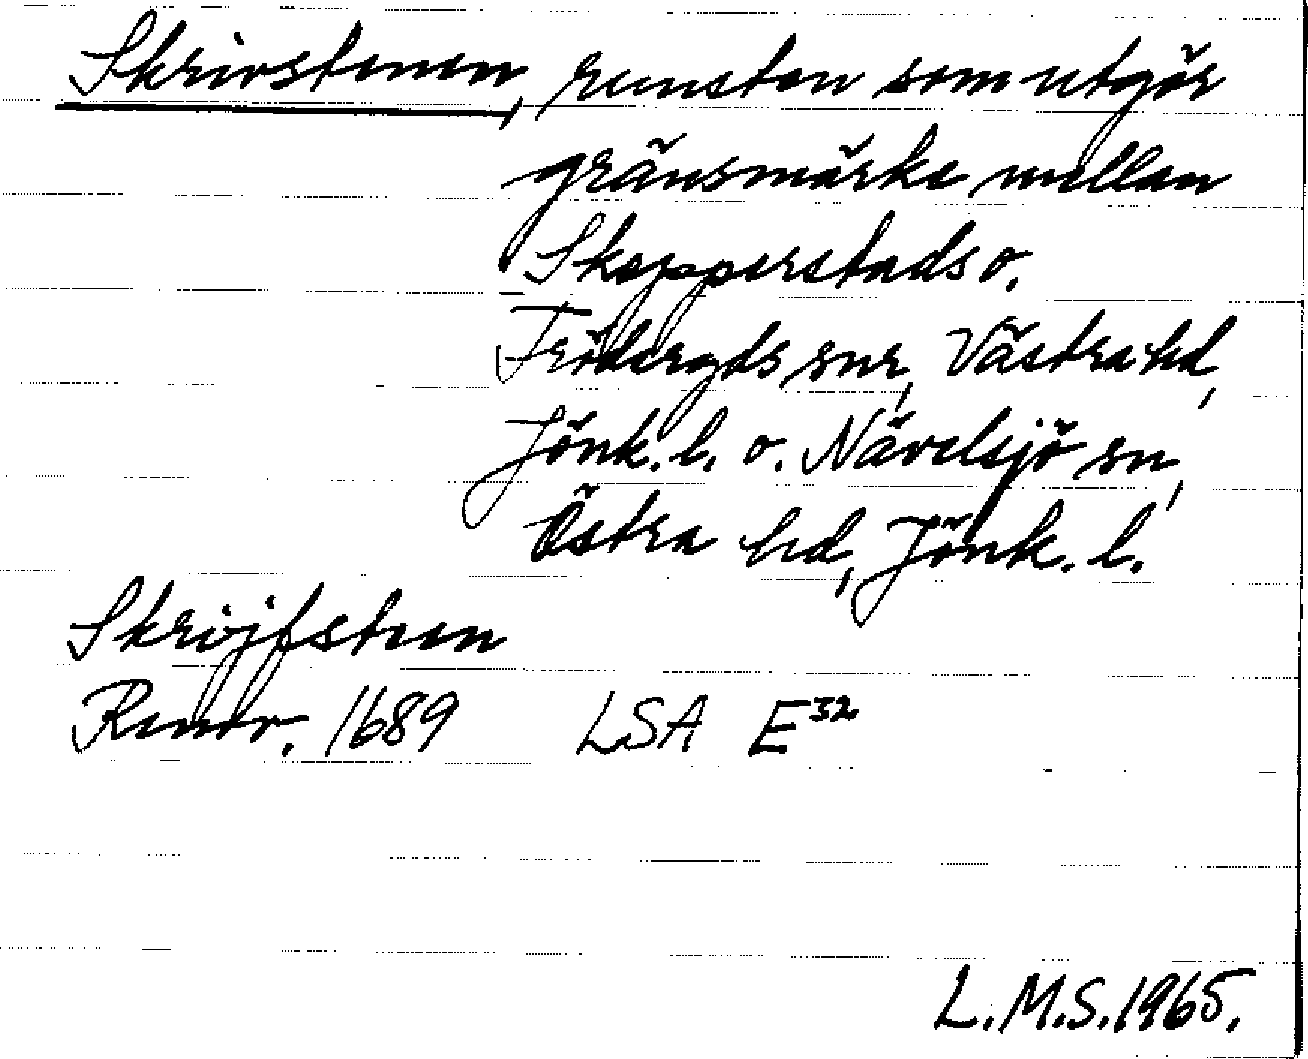 Skrivstenen, runsten som utgör
gränsmärke mellan
Skepperstads o.
Fröderyds snr, Västra hd,
Jönk. l. o. Nävelsjö sn,
Östra hd, Jönk. l.
Skrijfsteen
Renov. 1689 LSA E32
L.M.S. 1965.